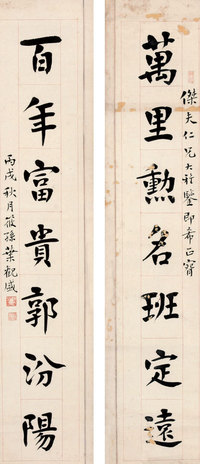 傑夫仁兄大雅鑒即希正腕
萬里勳名班定遠
百年富貴郭汾陽
丙戌秋月筱孫葉觀盛